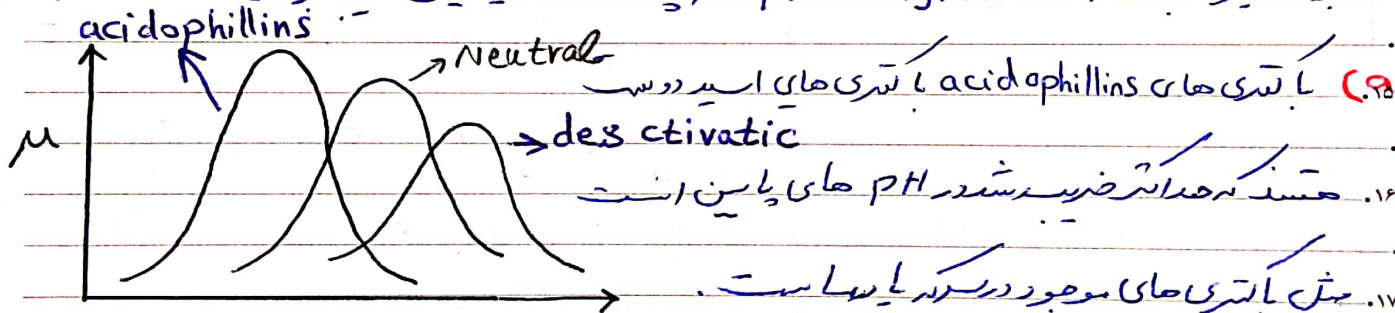 acidophillins
Neutral
des ctivatic
μ
باکتری های acidophillins باکتری های اسید دوست
۱۶. هستند که حداکثر ضریب رشد در pH های پایین است
۱۷. مثل باکتری های موجود در سرکه یا ماست.